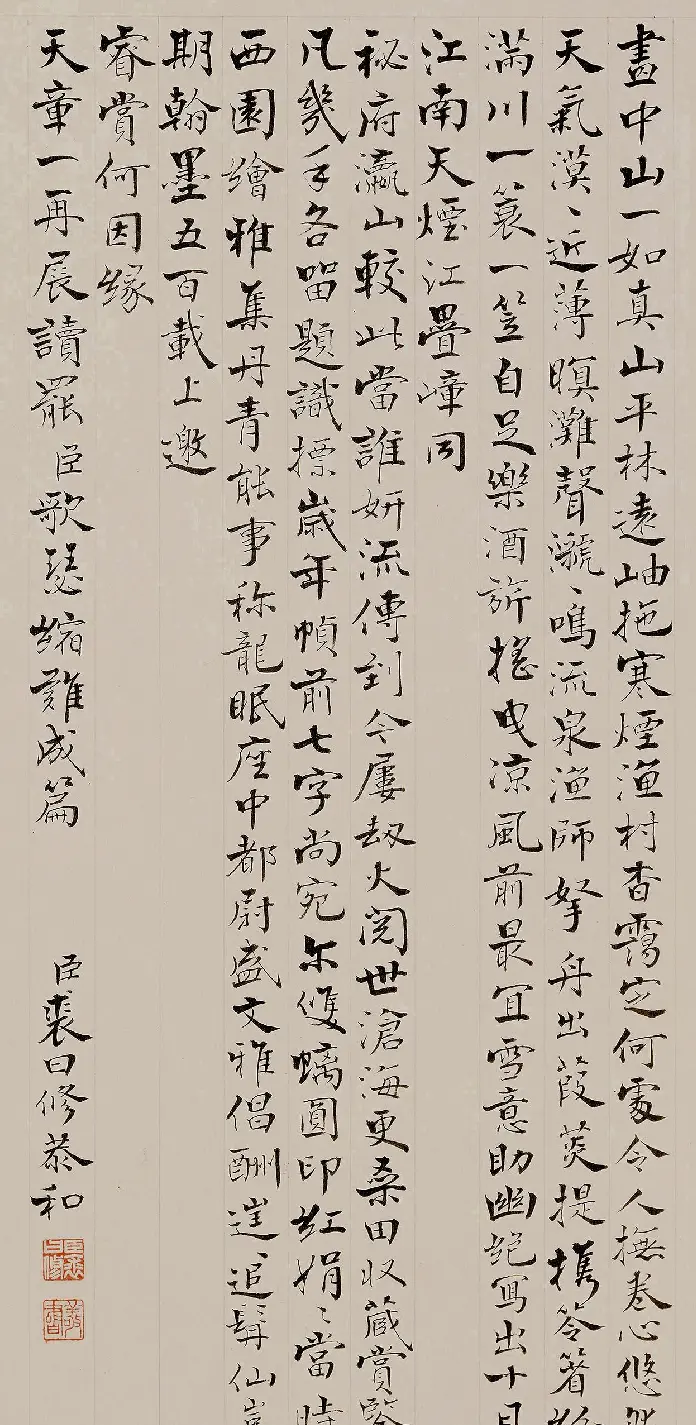 畫中山一如真山平林遠岫拖寒煙漁村杳靄定何處令人撫卷心悠然
天氣漠〻近薄暝灘聲㶁〻鳴流泉漁師拏舟出葭菼提攜笭箵
滿川一蓑一笠自足樂酒旂搖曳涼風前最宜雪意助幽絕寫出十月
江南天煙江疊嶂同
秘府瀛山較此當誰妍流傳到今屢劫火閱世滄海更桑田收藏賞鑒
凡幾手各留題識標歲年幀前七字尚宛尔雙螭圓印紅娟〻當時
西園繪雅集丹青能事称龍眠座中都尉盛文雅倡酬遑追髯仙豈
期翰墨五百載上邀
睿賞何因緣
天章一再展讀罷臣歌瑟縮難成篇 臣裘曰修恭和